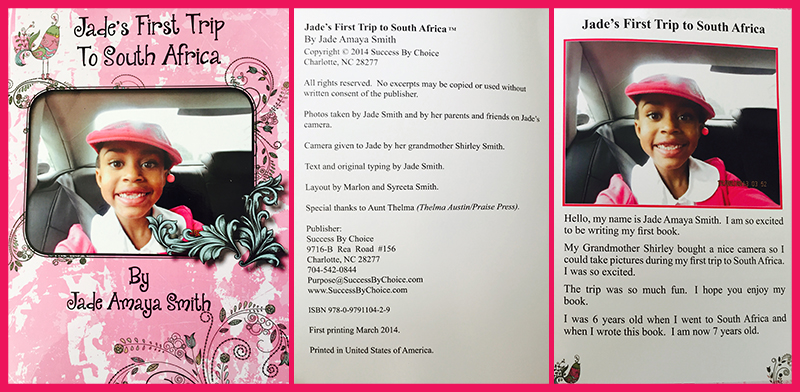 Jade's First Trip
To South Africa
By
Jade Amaya Smith
Jade's First Trip to South Africa™
By Jade Amaya Smith
Copyright © 2014 Success By Choice
Charlotte, NC 28277
All rights reserved.  No excerpts may be copied or used without
written consent of the publisher.
Photos taken by Jade Smith and by her parents and friends on Jade's
camera.
Camera given to Jade by her grandmother Shirley Smith.
Text and original typing by Jade Smith.
Layout by Marlon and Syreeta Smith.
Special thanks to Aunt Thelma (Thelma Austin/Praise Press).
Publisher:
Success By Choice
9716-B  Rea  Road  #156
Charlotte, NC 28277
704-542-0844
Purpose@SuccessByChoice.com
www.SuccessByChoice.com
ISBN 978-0-9791104-2-9
First printing March 2014.
Printed in United States of America.
Jade's First Trip to South Africa
Hello, my name is Jade Amaya Smith.  I am so excited
to be writing my first book.
My Grandmother Shirley bought a nice camera so I
could take pictures during my first trip to South Africa.
I was so excited.
The trip was so much fun.  I hope you enjoy my
book.
I was 6 years old when I went to South Africa and
when I wrote this book.  I am now 7 years old.